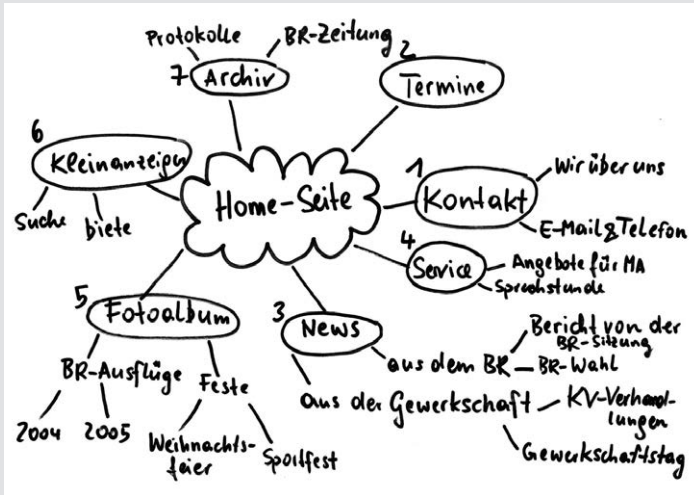 Home-Seite
1
Kontakt
Wir über uns
E-Mail & Telefon
2
Termine
3
News
aus dem BR
Bericht von der
BR-Sitzung
BR-Wahl
aus der Gewerkschaft
KV-Verhand-
lungen
Gewerkschaftstag
4
Service
Angebote für MA
Sprechstunde
5
Fotoalbum
BR-Ausflüge
2004
2005
Feste
Weihnachts-
feier
Sportfest
6
Kleinanzeigen
Suche
biete
7
Archiv
Protokolle
BR-Zeitung